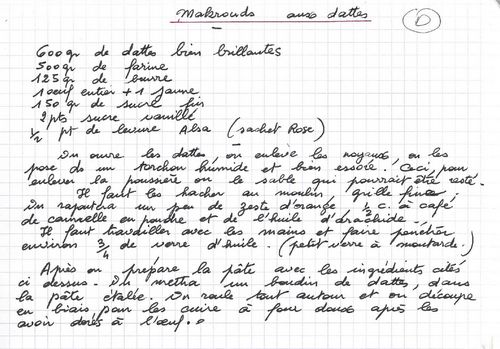 Makrouds aux dattes
D
600gr de dattes bien brillantes
500gr de farine
125gr de beurre
1 oeuf entier + 1 jaune
150 gr de sucre fin
2 pts sucre vanillé
1/2 pt de levure Alsa (sachet Rose)
On ouvre les dattes, on enlève les noyaux, on les
pose ds un torchon humide et bien essoré. Ceci, pour
enlever la poussière ou le sable qui pourrait être resté.
Il faut les hacher au moulin, grille fine,
On rajoutera un peu de zeste d'orange 1/2 c. à café
de cannelle en poudre et de l'huile d'arachide.
Il faut travailler avec les mains et faire pénétrer
environ 3/4 de verre d'huile. (petit verre à moutarde.)
Après on prépare la pâte avec les ingrédients cités
ci dessus. On mettra un boudin de dattes, dans
la pâte étalée. On roule tout autour et on découpe
en biais, pour les cuire à four doux après les
avoir dorés à l'oeuf.